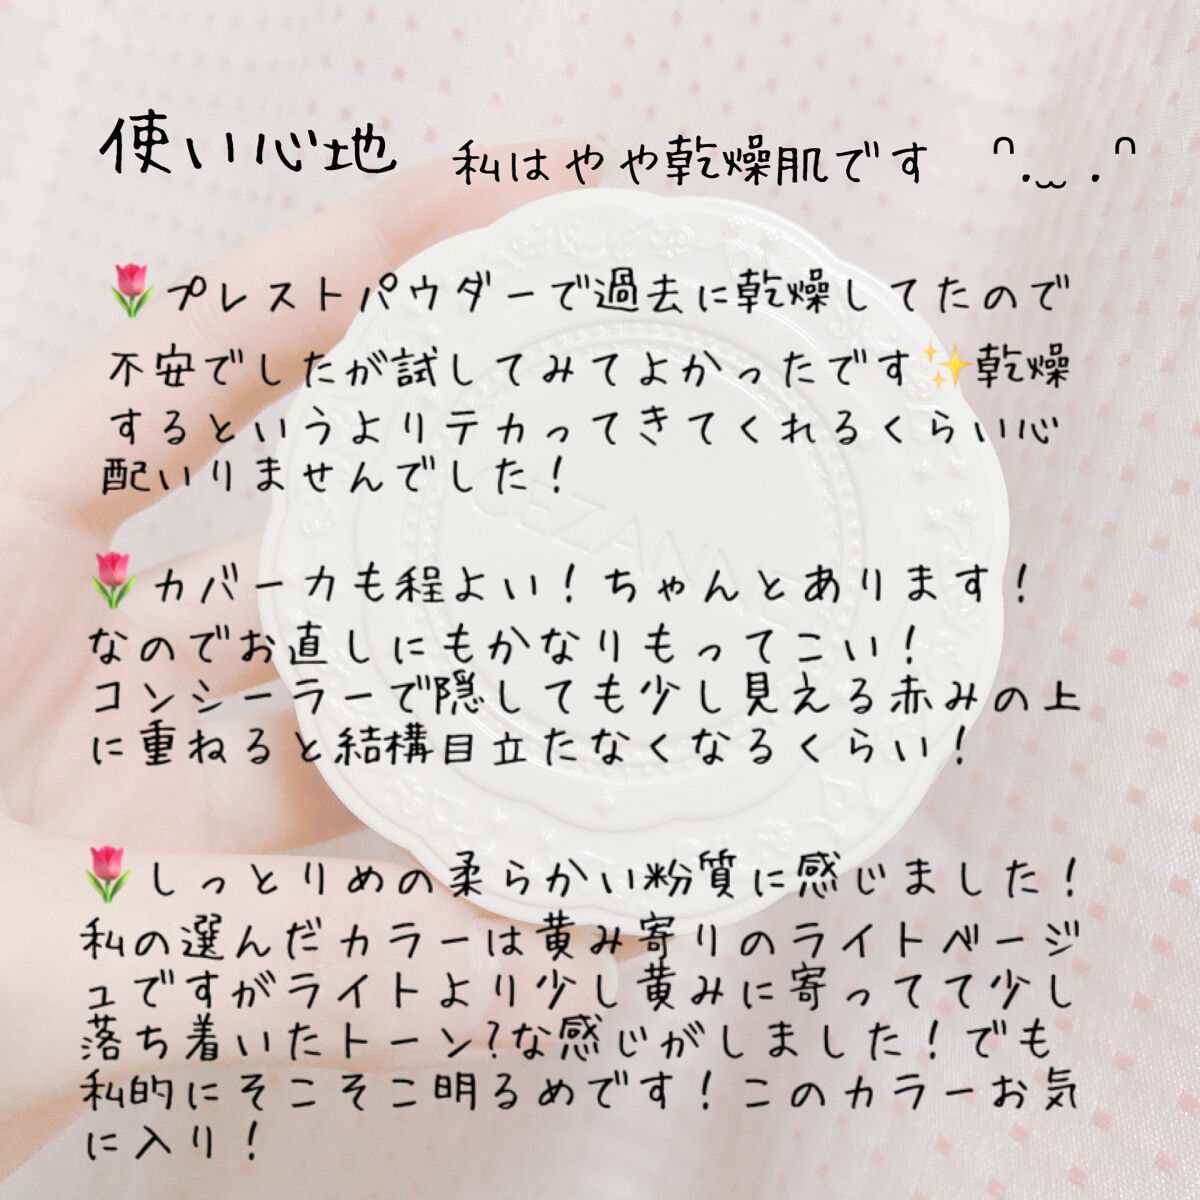 使い心地 私はやや乾燥肌です ᵔ.˷.ᵔ
🌷プレストパウダーで過去に乾燥してたので
不安でしたが試してみてよかったです✨乾燥
するというよりテカってきてくれるくらい心
配いりませんでした！
🌷カバー力も程よい！ちゃんとあります！
なのでお直しにもかなりもってこい！
コンシーラーで隠しても少し見える赤みの上
に重ねると結構目立たなくなるくらい！
🌷しっとりめの柔らかい粉質に感じました！
私の選んだカラーは黄み寄りのライトベージ
ュですがライトより少し黄みに寄ってて少し
落ち着いたトーン?な感じがしました！でも
私的にそこそこ明るめです！このカラーお気
に入り！
CEZANNE